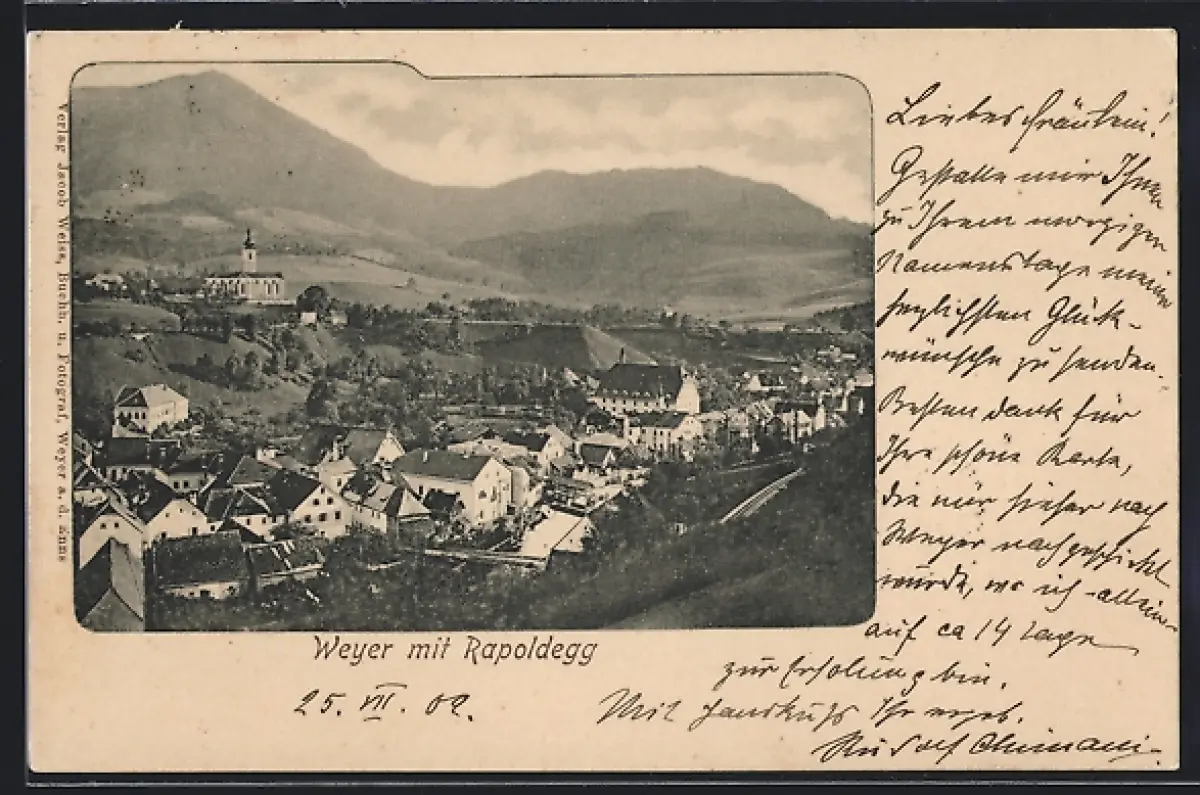 Verlag Jacob Weiss, Buchh. u. Fotograf, Weyer a. d. Enns
Liebes Fräulein!
Gestatten mir Ihnen
zu Ihrem morgigen
Namenstage meine
herzlichsten Glück-
wünsche zu senden.
Besten Dank für
Ihre schöne Karte,
die mir hieher nach
Weyer nachgeschickt
wurde, wo ich alleine
auf ca 14 Tage
zur Erholung bin.
Mit Handkuss Ihr ergeb.
Rudolf
Weyer mit Rapoldegg
25. VII. 02.